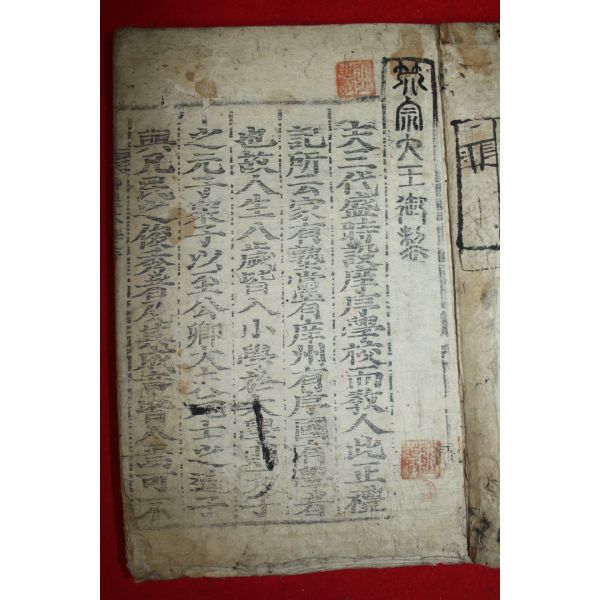 英宗大王御製
夫三代盛時設庠序學校而教人此正禮
記所云家有塾黨有庠州有序國有學者
也故人生八歲皆入小學於大學則天子
之元子衆子以至公卿大夫元士之適子
與凡民之俊秀者及其成童皆入焉可不